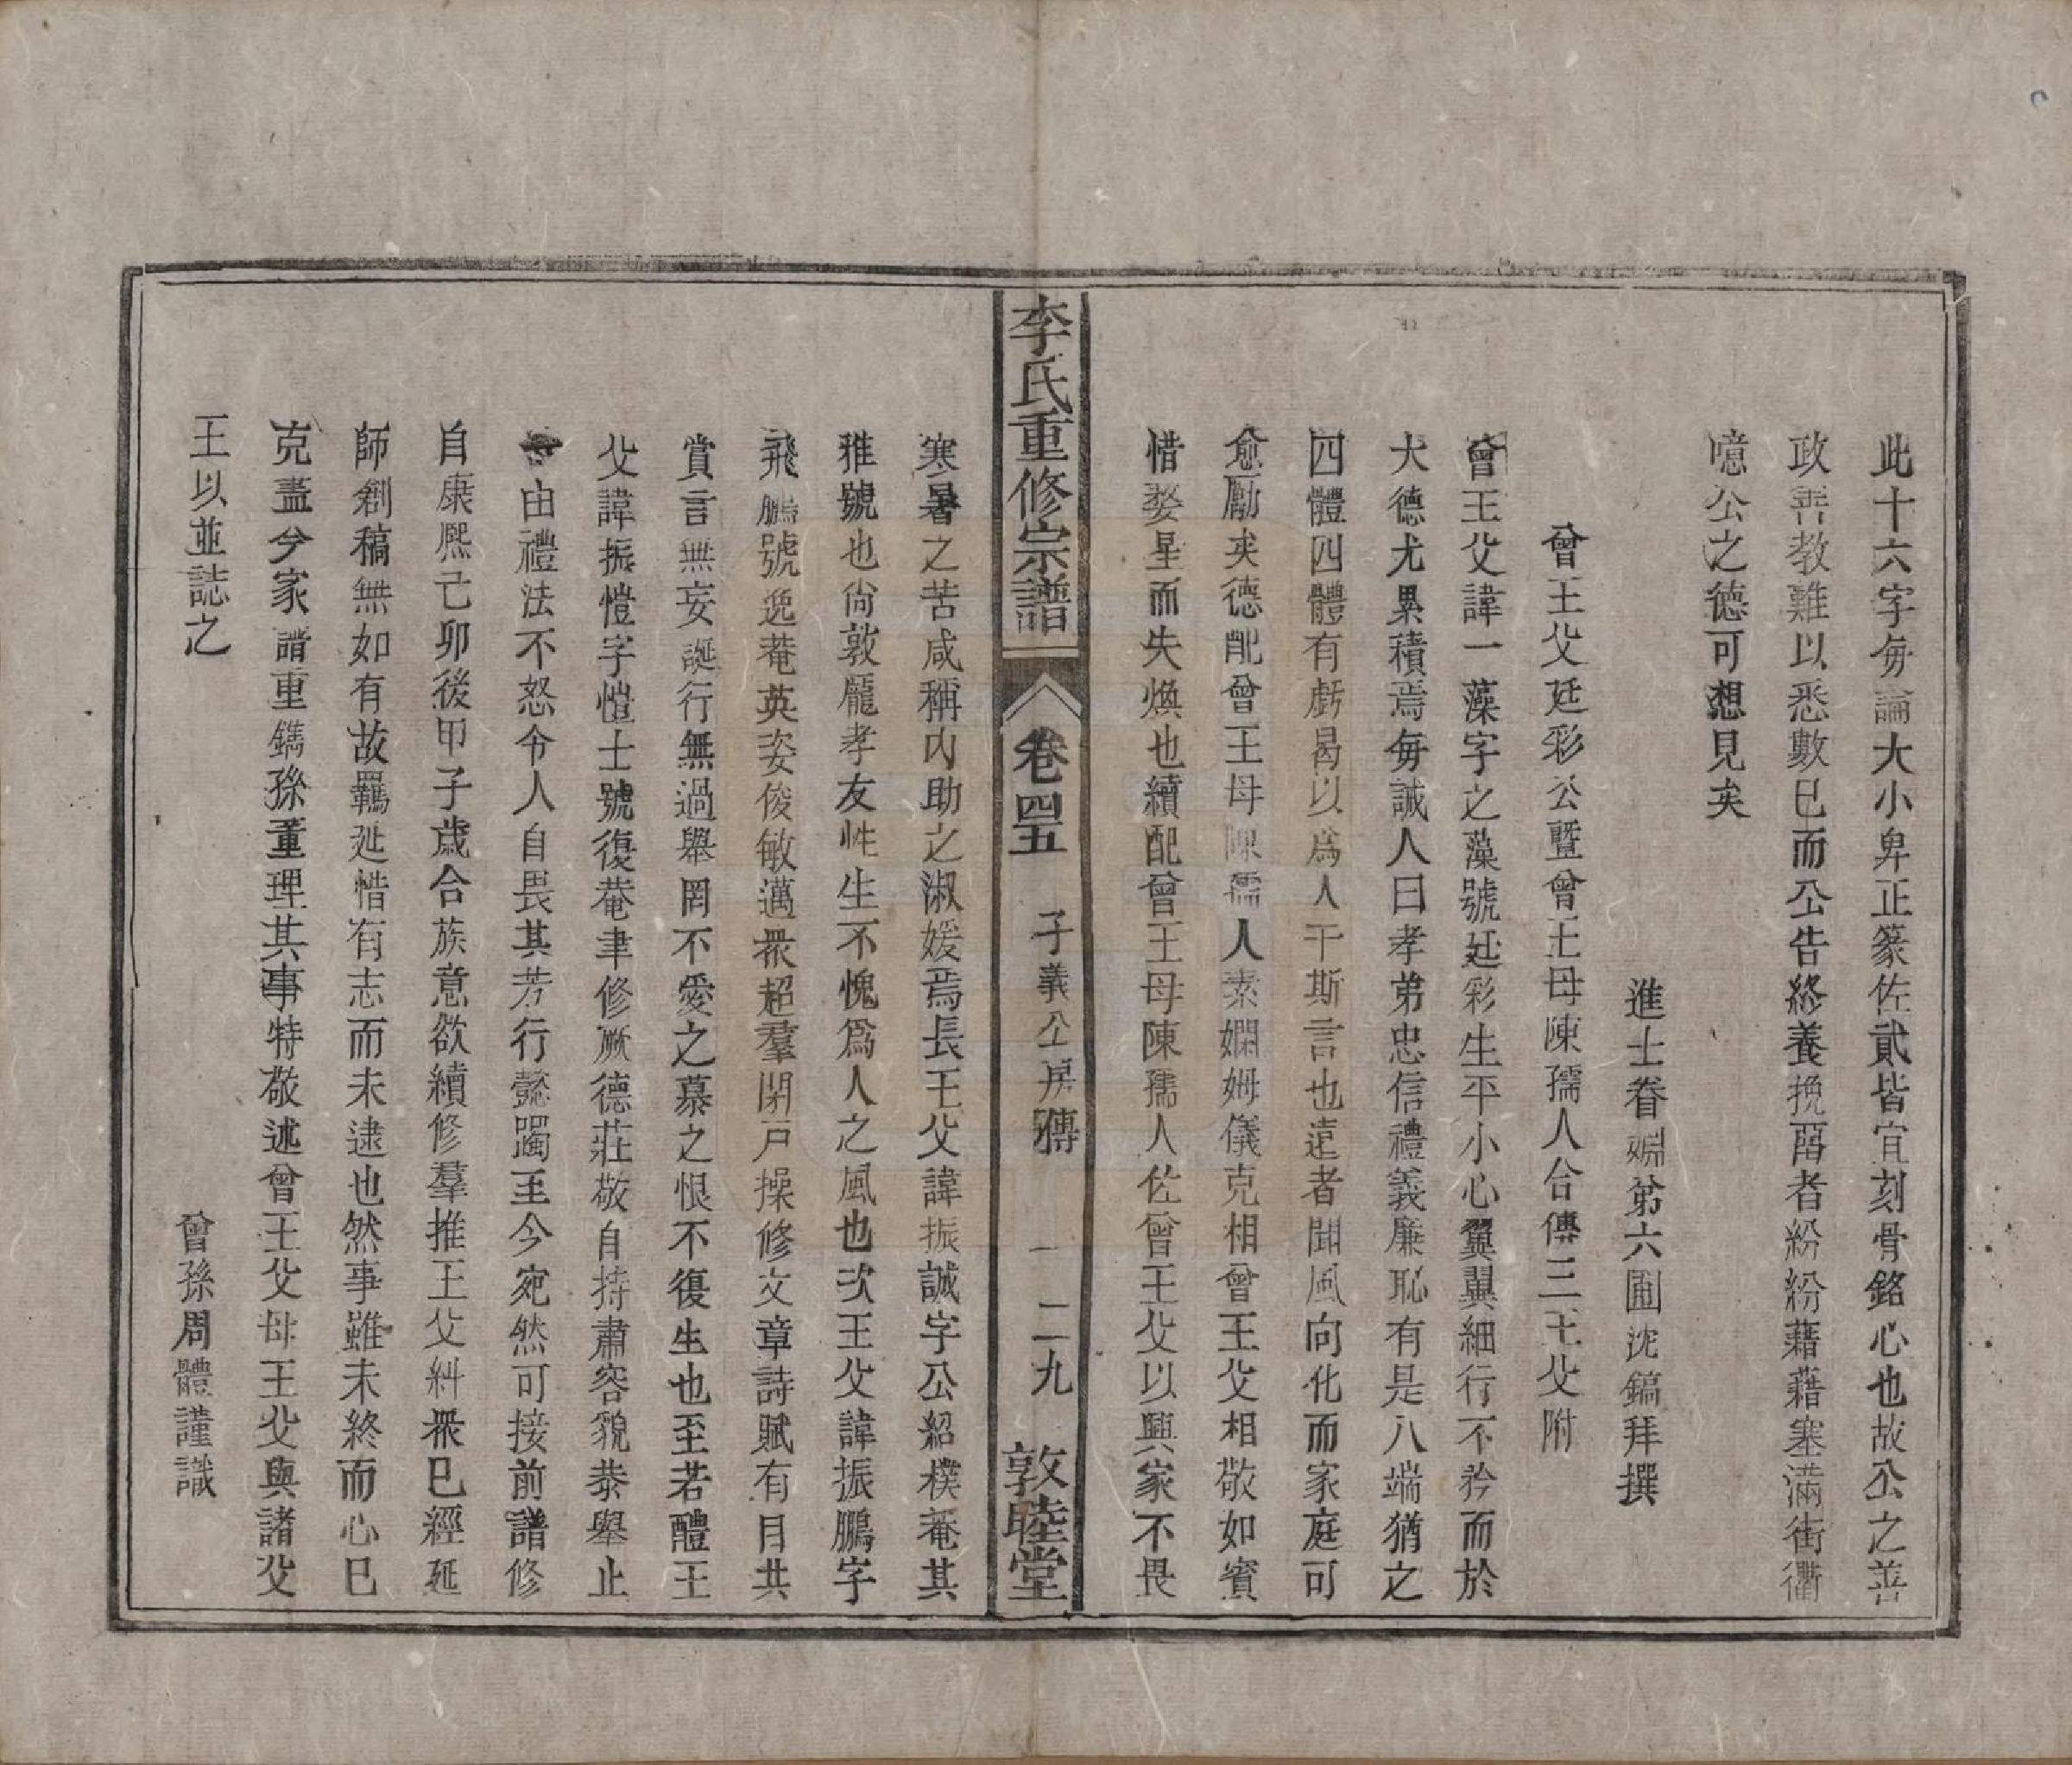 此十六字毋論大小卑正篆佐貳皆宜刻骨銘心也故公之善
政善教難以悉數已而公告終養挽畱者紛紛藉藉塞滿街衢
噫公之德可想見矣
進士眷姻弟六圃沈鎬拜撰
曾王父廷彩公暨曾王母陳孺人合傳三王父附
曾王父諱一藻字之藻號廷彩生平小心翼翼細行不矜而於
大德尤累積焉每誡人曰孝弟忠信禮義廉恥有是八端猶之
四體四體有虧曷以爲人干斯言也遠者聞風向化而家庭可
愈勵矣德配曾王母陳孺人素嫻姆儀克相曾王父相敬如賓
惜婺星而失煥也續配曾王母陳孺人佐曾王父以興家不畏
李氏重修宗譜 卷四五 子義公房傳 一 二九 敦睦堂
寒暑之苦咸稱内助之淑媛焉長王父諱振誠字公紹樸菴其
雅號也尙敦龐孝友性生不愧爲人之風也次王父諱振鵬字
飛鵬號逸菴英姿俊敏邁衆超羣閉戸操修文章詩賦有目共
賞言無妄誕行無過舉罔不愛之慕之恨不復生也至若醴王
父諱振愷字愷士號復菴聿修厥德莊敬自持肅容貌恭舉止
由禮法不怒令人自畏其芳行懿躅至今宛然可接前譜修
自康熙己卯後甲子歲合族意欲續修羣推王父糾衆已經延
師創稿無如有故羈延惜有志而未逮也然事雖未終而心已
克盡兮家譜重鐫孫董理其事特敬述曾王父母王父與諸父
王以並誌之
曾孫周體謹識